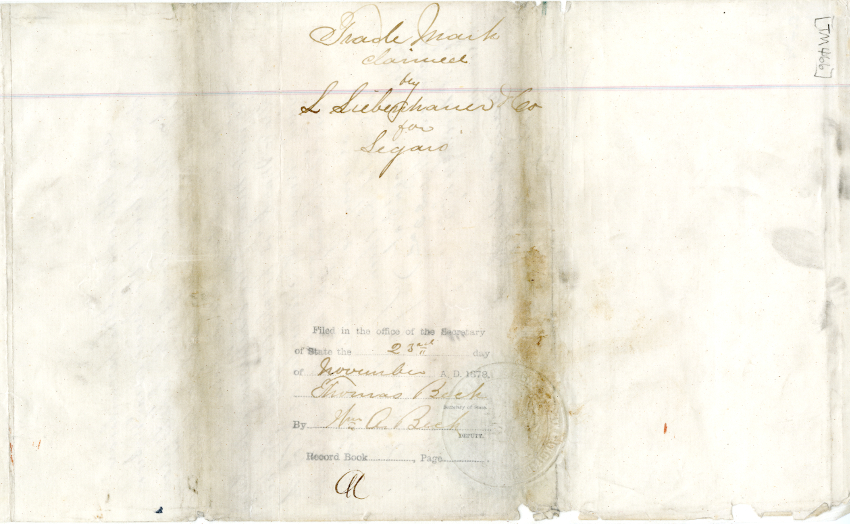 Trade Mark
claimed
by
L Siebenhauer & Co
for
Segars
[TM 466]
Filed in the office of the Secretary
of State the 23rd day
of November A. D. 1878.
Thomas Beck
Secretary of State.
By Wm A. Beck
DEPUTY.
Record Book, Page